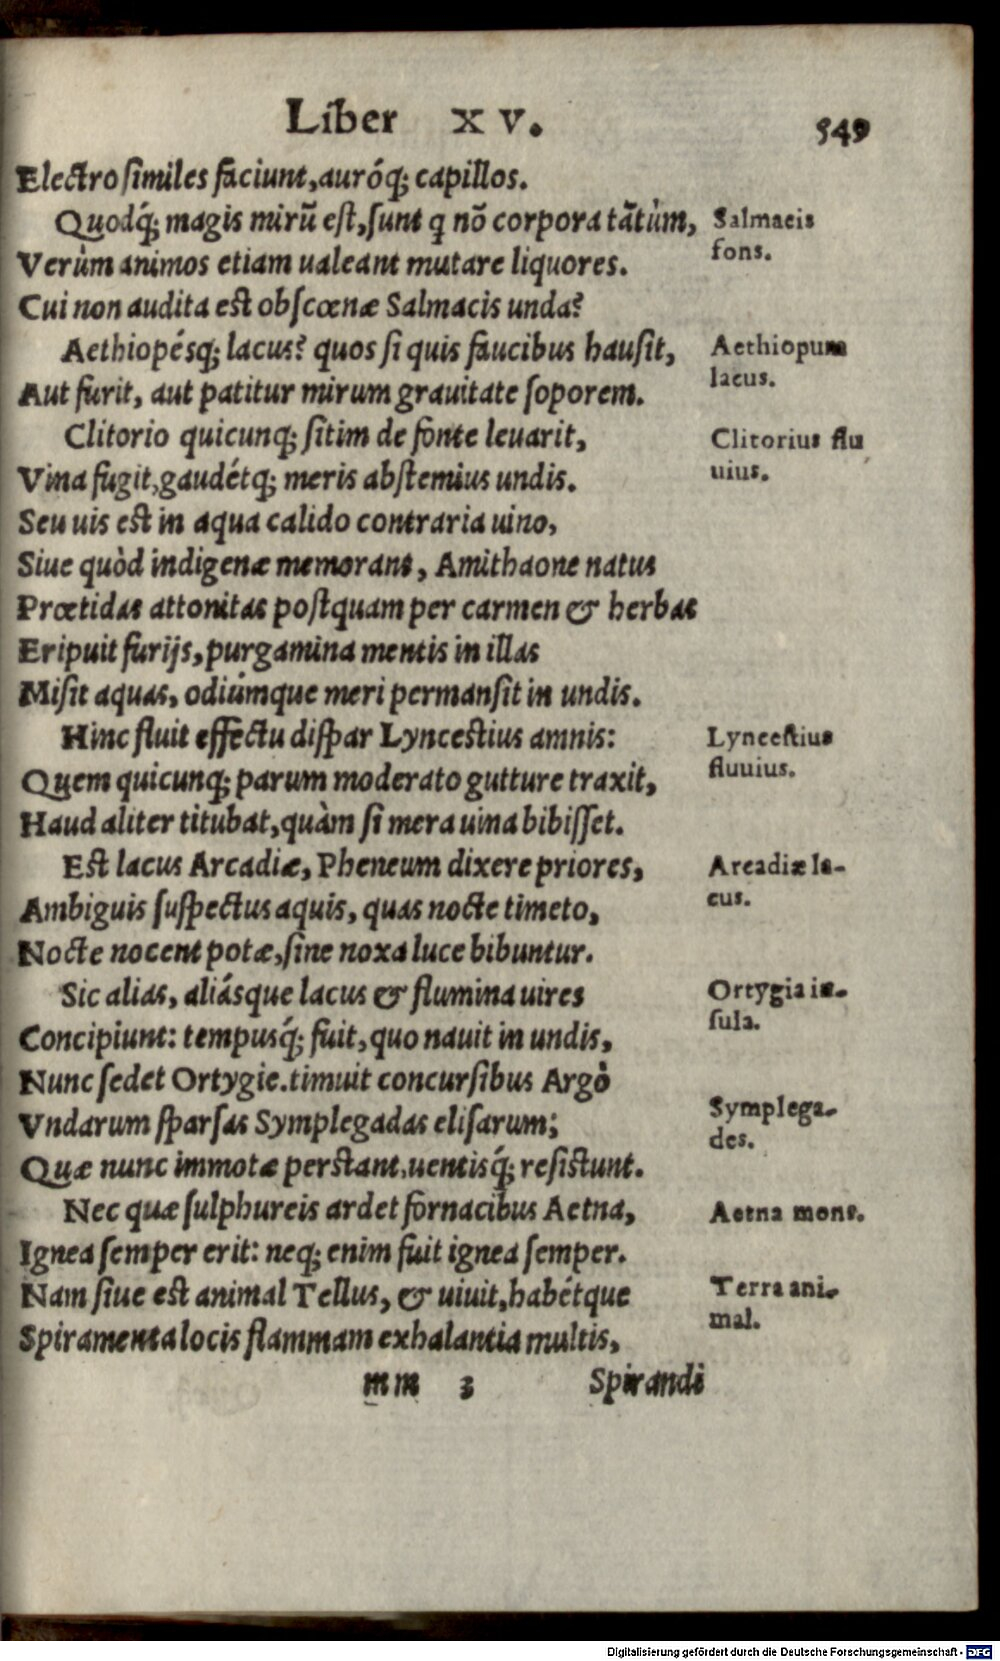 Liber XV. 549
Electro ſimiles faciunt, auróq; capillos.
Quodq́; magis mirũ eſt, ſunt q nõ corpora tãtùm,
Salmacis
fons.
Verùm animos etiam ualeant mutare liquores.
Cui non audita eſt obſcœnæ Salmacis unda?
Aethiopésq; lacus? quos ſi quis faucibus hauſit,
Aethiopum
lacus.
Aut furit, aut patitur mirum grauitate ſoporem.
Clitorio quicunq; ſitim de fonte leuarit,
Clitorius flu
uius.
Vina fugit, gaudétq; meris abſtemius undis.
Seu uis eſt in aqua calido contraria uino,
Siue quòd indigenæ memorant, Amithaone natus
Prœtidas attonitas poſtquam per carmen & herbas
Eripuit furijs, purgamina mentis in illas
Miſit aquas, odiúmque meri permanſit in undis.
Hinc fluit effectu diſpar Lynceſtius amnis:
Lynceſtius
fluuius.
Quem quicunq; parum moderato gutture traxit,
Haud aliter titubat, quàm ſi mera uina bibiſſet.
Eſt lacus Arcadiæ, Pheneum dixere priores,
Arcadiæ la-
cus.
Ambiguis ſuſpectus aquis, quas nocte timeto,
Nocte nocent potæ, ſine noxa luce bibuntur.
Sic alias, aliásque lacus & flumina uires
Ortygia in-
ſula.
Concipiunt: tempusq́; fuit, quo nauit in undis,
Nunc ſedet Ortygie. timuit concurſibus Argò
Vndarum ſparſas Symplegadas eliſarum;
Symplega-
des.
Quæ nunc immotæ perſtant, uentisq́; reſiſtunt.
Nec quæ ſulphureis ardet fornacibus Aetna,
Aetna mons.
Ignea ſemper erit: neq; enim fuit ignea ſemper.
Nam ſiue eſt animal Tellus, & uiuit, habétque
Terra ani-
mal.
Spiramenta locis flammam exhalantia multis,
mm 3 Spirandi
Digitalisierung gefördert durch die Deutsche Forschungsgemeinschaft - DFG